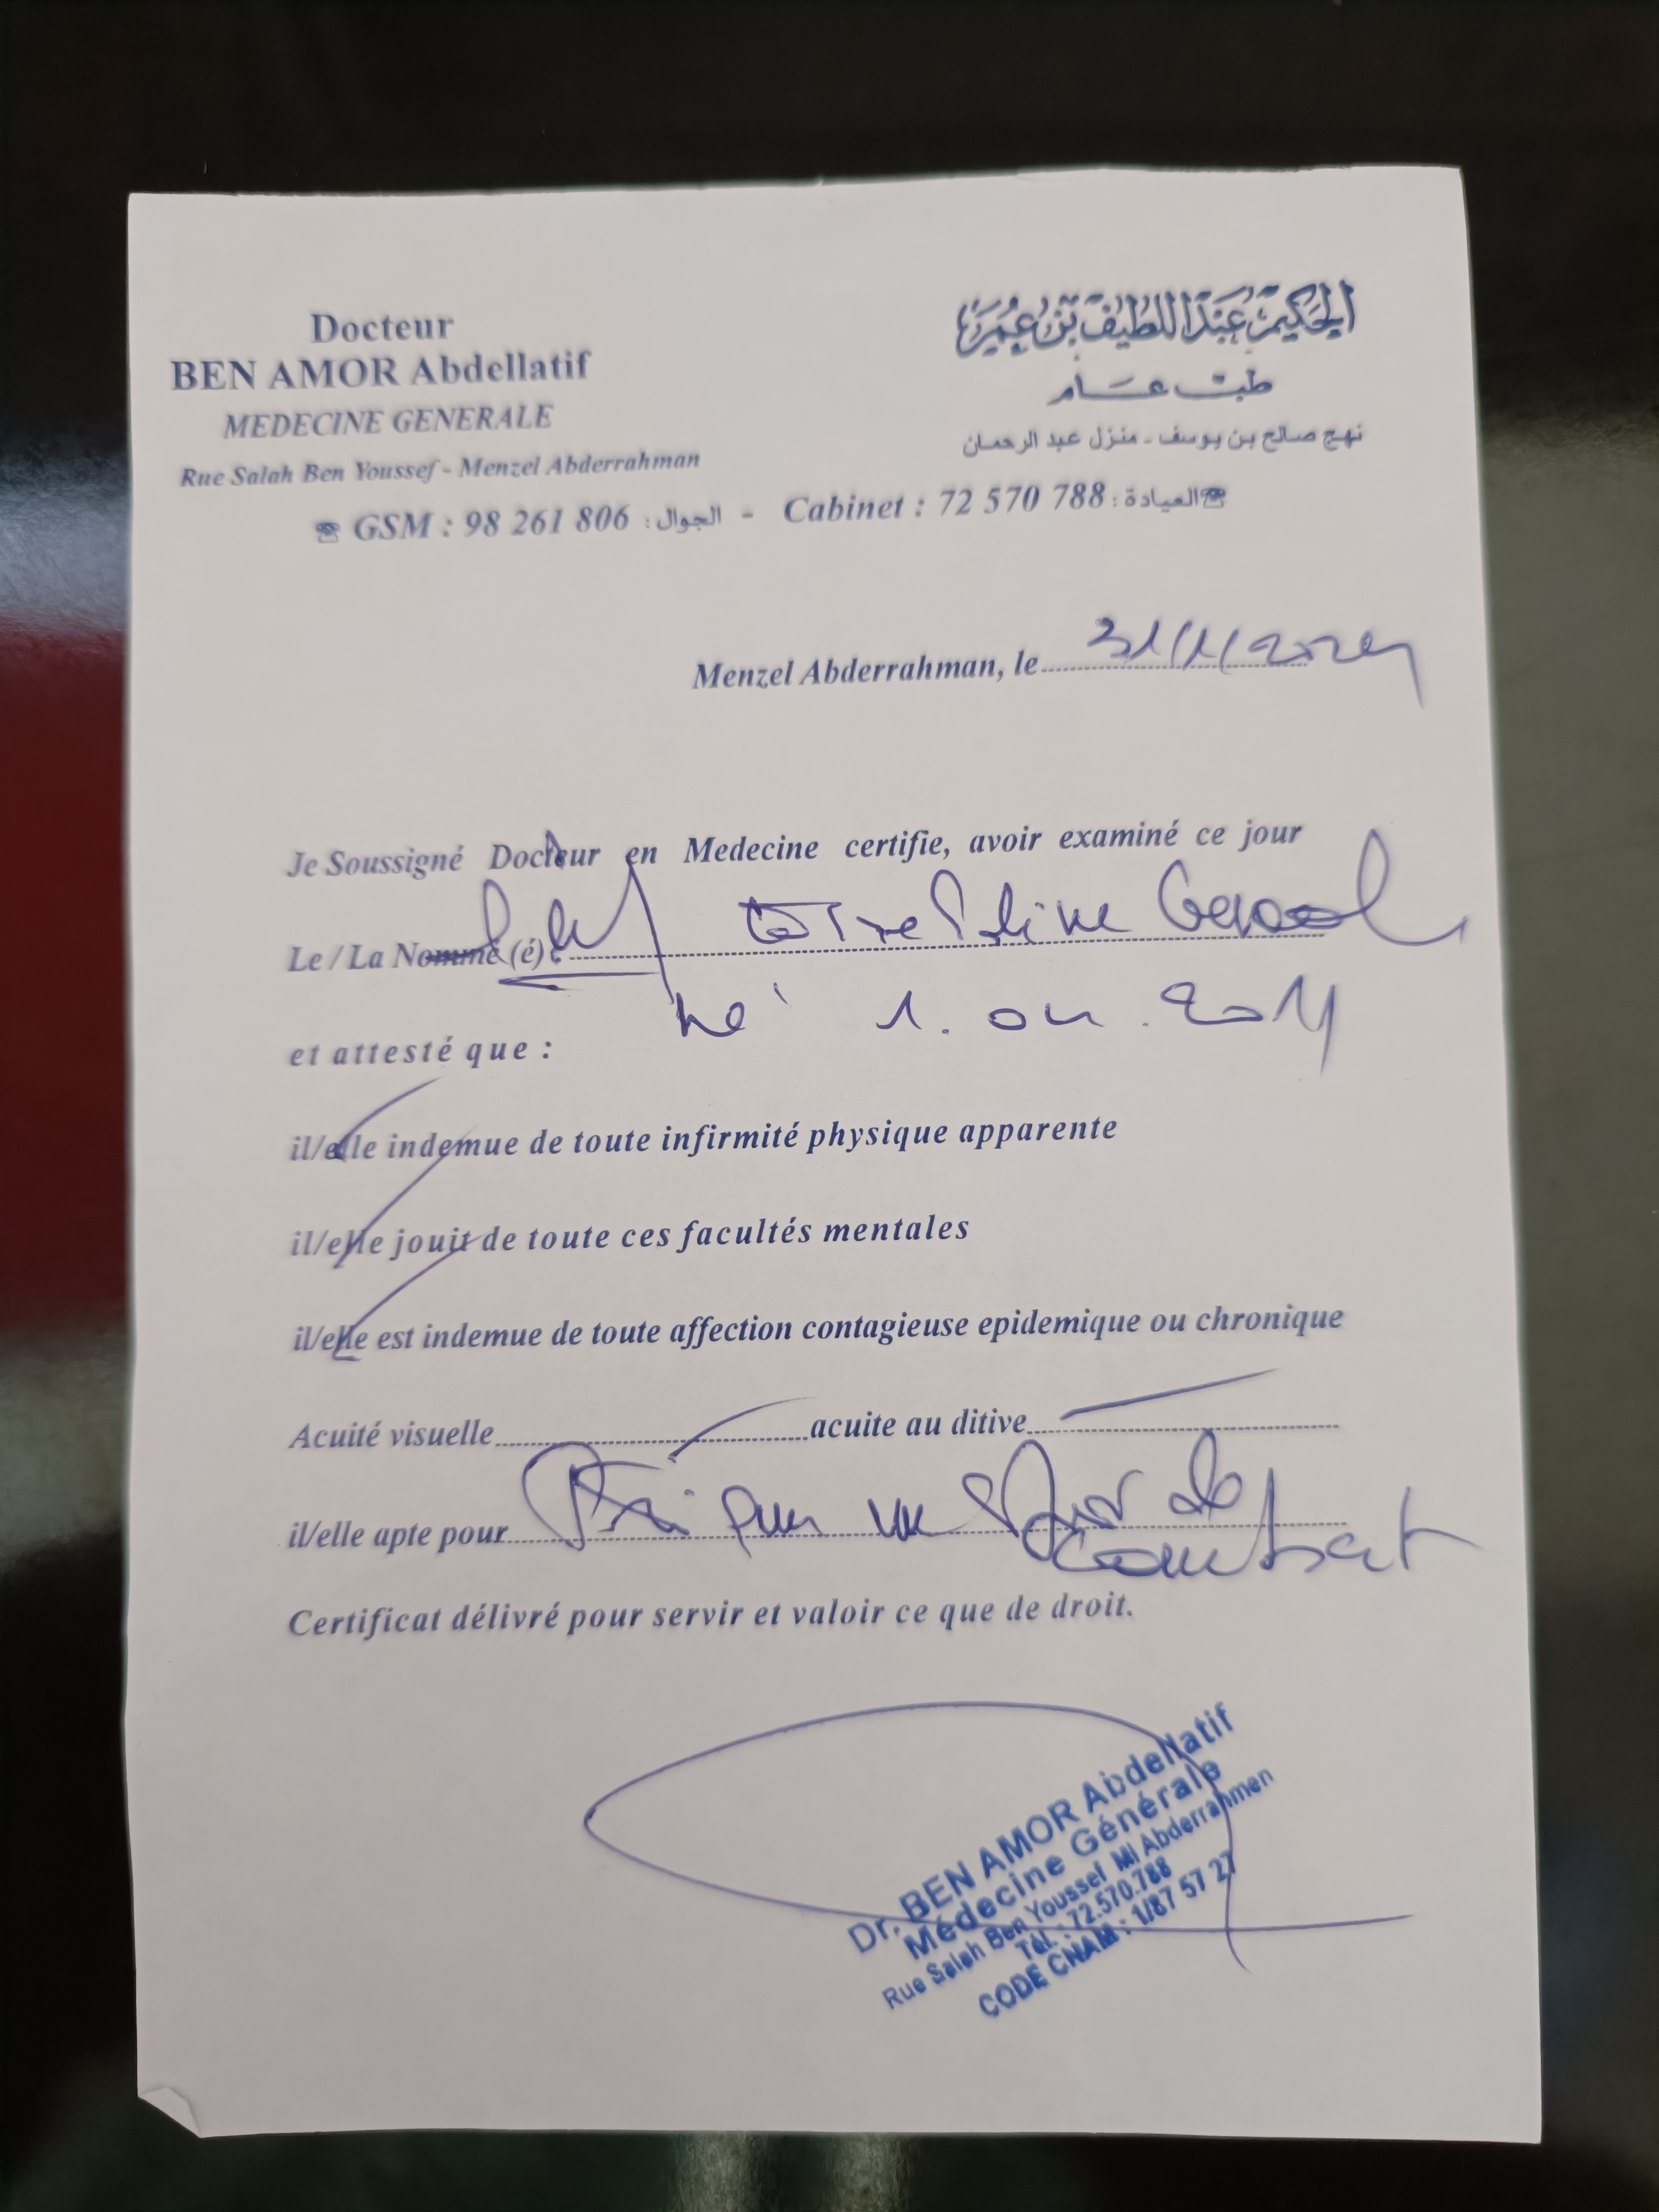 Docteur
BEN AMOR Abdellatif
MEDECINE GENERALE
Rue Salah Ben Youssef - Menzel Abderrahman
الحكيم عبد اللطيف بن عمر
طب عام
نهج صالح بن يوسف - منزل عبد الرحمان
GSM : 98 261 806 : الجوال - Cabinet : 72 570 788 : العيادة
Menzel Abderrahman, le 31/1/2024
Je Soussigné Docteur en Medecine certifie, avoir examiné ce jour
Le / La Nommé (é) :
né 1. 04. 2011
et attesté que :
il/elle indemue de toute infirmité physique apparente
il/elle jouit de toute ces facultés mentales
il/elle est indemue de toute affection contagieuse epidemique ou chronique
Acuité visuelle acuite au ditive
il/elle apte pour de combat
Certificat délivré pour servir et valoir ce que de droit.
Dr. BEN AMOR Abdellatif
Médecine Générale
Rue Salah Ben Youssef Ml Abderrahmen
Tél. : 72.570.788
CODE CNAM : 1/87 57 27